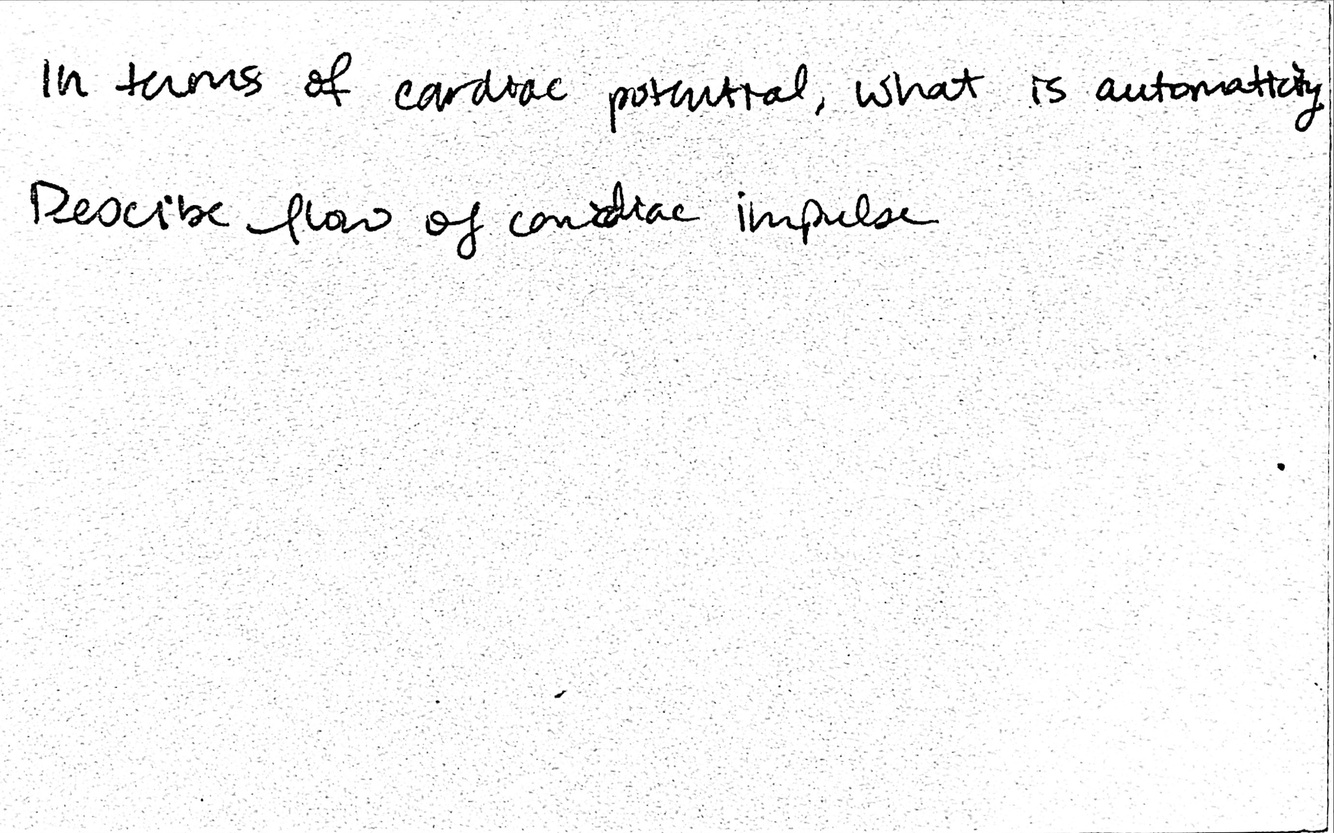 In terms of cardiac potential, what is automaticity
Describe flow of cardiac impulse